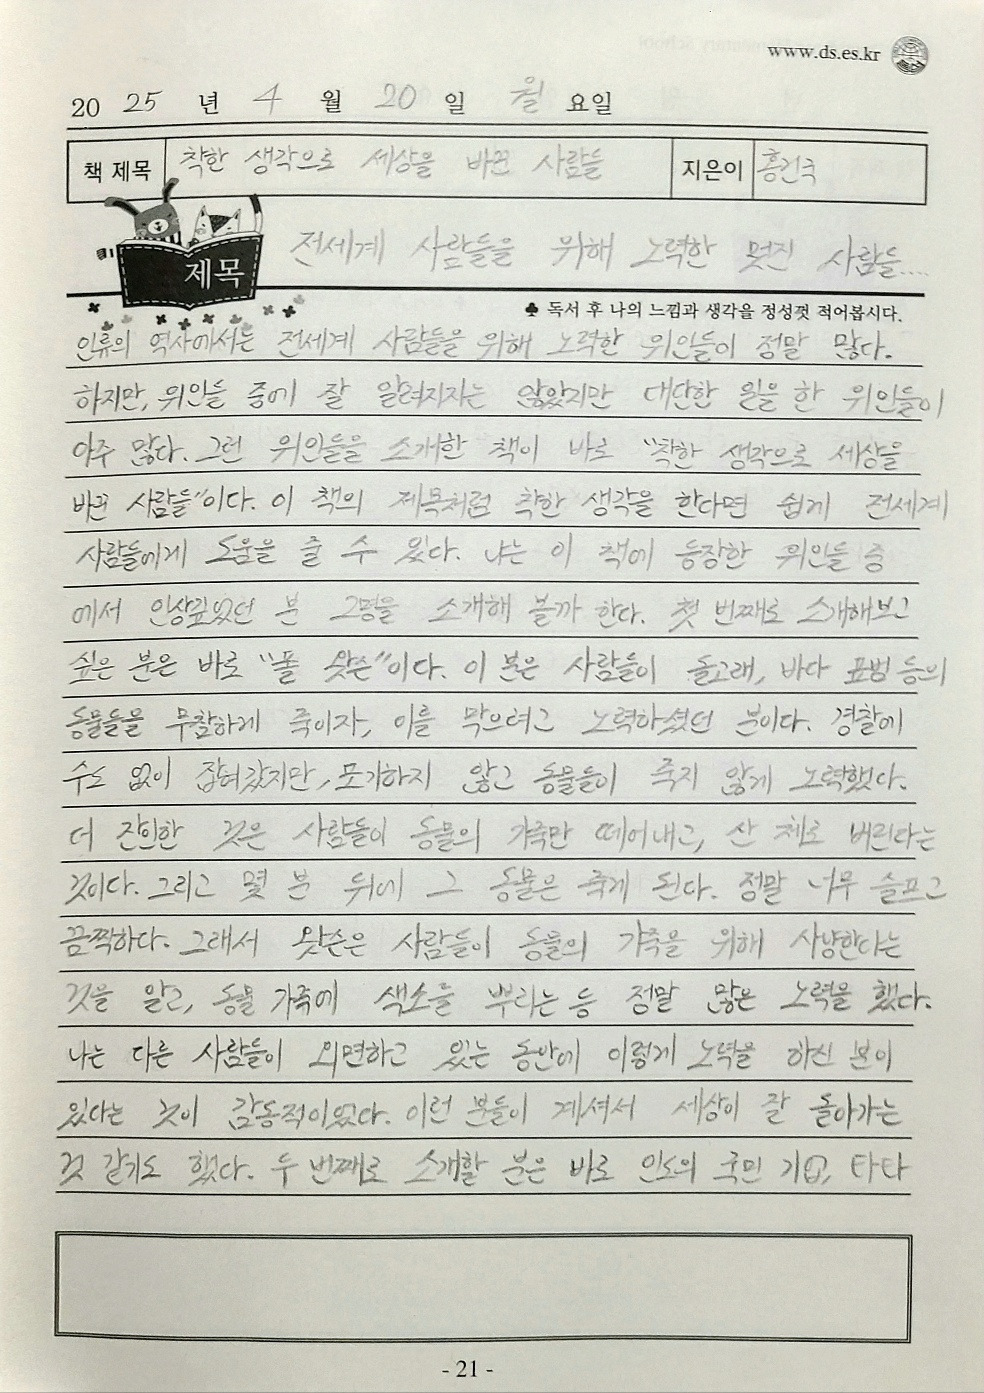 www.ds.es.kr
20 25 년 4 월 20 일 월 요일
책 제목 착한 생각으로 세상을 바꾼 사람들 지은이 홍건국
제목 전세계 사람들을 위해 노력한 멋진 사람들....
♣ 독서 후 나의 느낌과 생각을 정성껏 적어봅시다.
인류의 역사에서는 전세계 사람들을 위해 노력한 위인들이 정말 많다.
하지만, 위인들 중에 잘 알려지지는 않았지만 대단한 일을 한 위인들이
아주 많다. 그런 위인들을 소개한 책이 바로 "착한 생각으로 세상을
바꾼 사람들"이다. 이 책의 제목처럼 착한 생각을 한다면 쉽게 전세계
사람들에게 도움을 줄 수 있다. 나는 이 책에 등장한 위인들 중
에서 인상깊었던 분 2명을 소개해 볼까 한다. 첫 번째로 소개해보고
싶은 분은 바로 "폴 왓슨"이다. 이 분은 사람들이 돌고래, 바다 표범 등의
동물들을 무참하게 죽이자, 이를 막으려고 노력하셨던 분이다. 경찰에
수도 없이 잡혀갔지만, 포기하지 않고 동물들이 죽지 않게 노력했다.
더 잔인한 것은 사람들이 동물의 가죽만 떼어내고, 산 채로 버린다는
것이다. 그리고 몇 분 뒤에 그 동물은 죽게 된다. 정말 너무 슬프고
끔찍하다. 그래서 왓슨은 사람들이 동물의 가죽을 위해 사냥한다는
것을 알고, 동물 가죽에 색소를 뿌리는 등 정말 많은 노력을 했다.
나는 다른 사람들이 외면하고 있는 동안에 이렇게 노력을 하신 분이
있다는 것이 감동적이었다. 이런 분들이 계셔서 세상이 잘 돌아가는
것 같기도 했다. 두 번째로 소개할 분은 바로 인도의 국민 기업, 타타
- 21 -